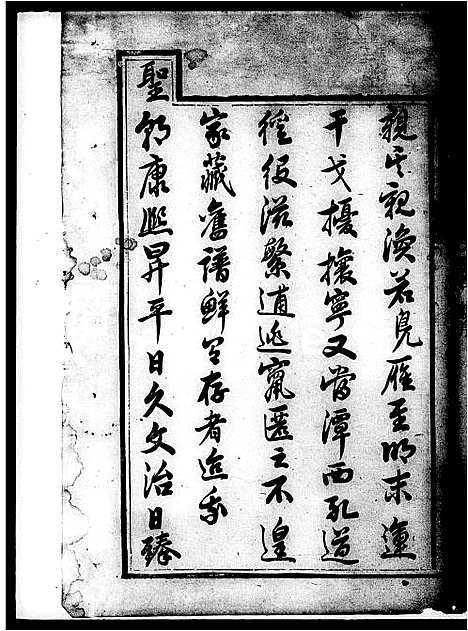 親其親渙若鳧雁至明末運
干戈擾攘寧又當潭西孔道
徭役滋繁逋逃竄匿之不遑
家藏舊譜鮮有存者迨我
聖朝康熙昇平日久文治日臻